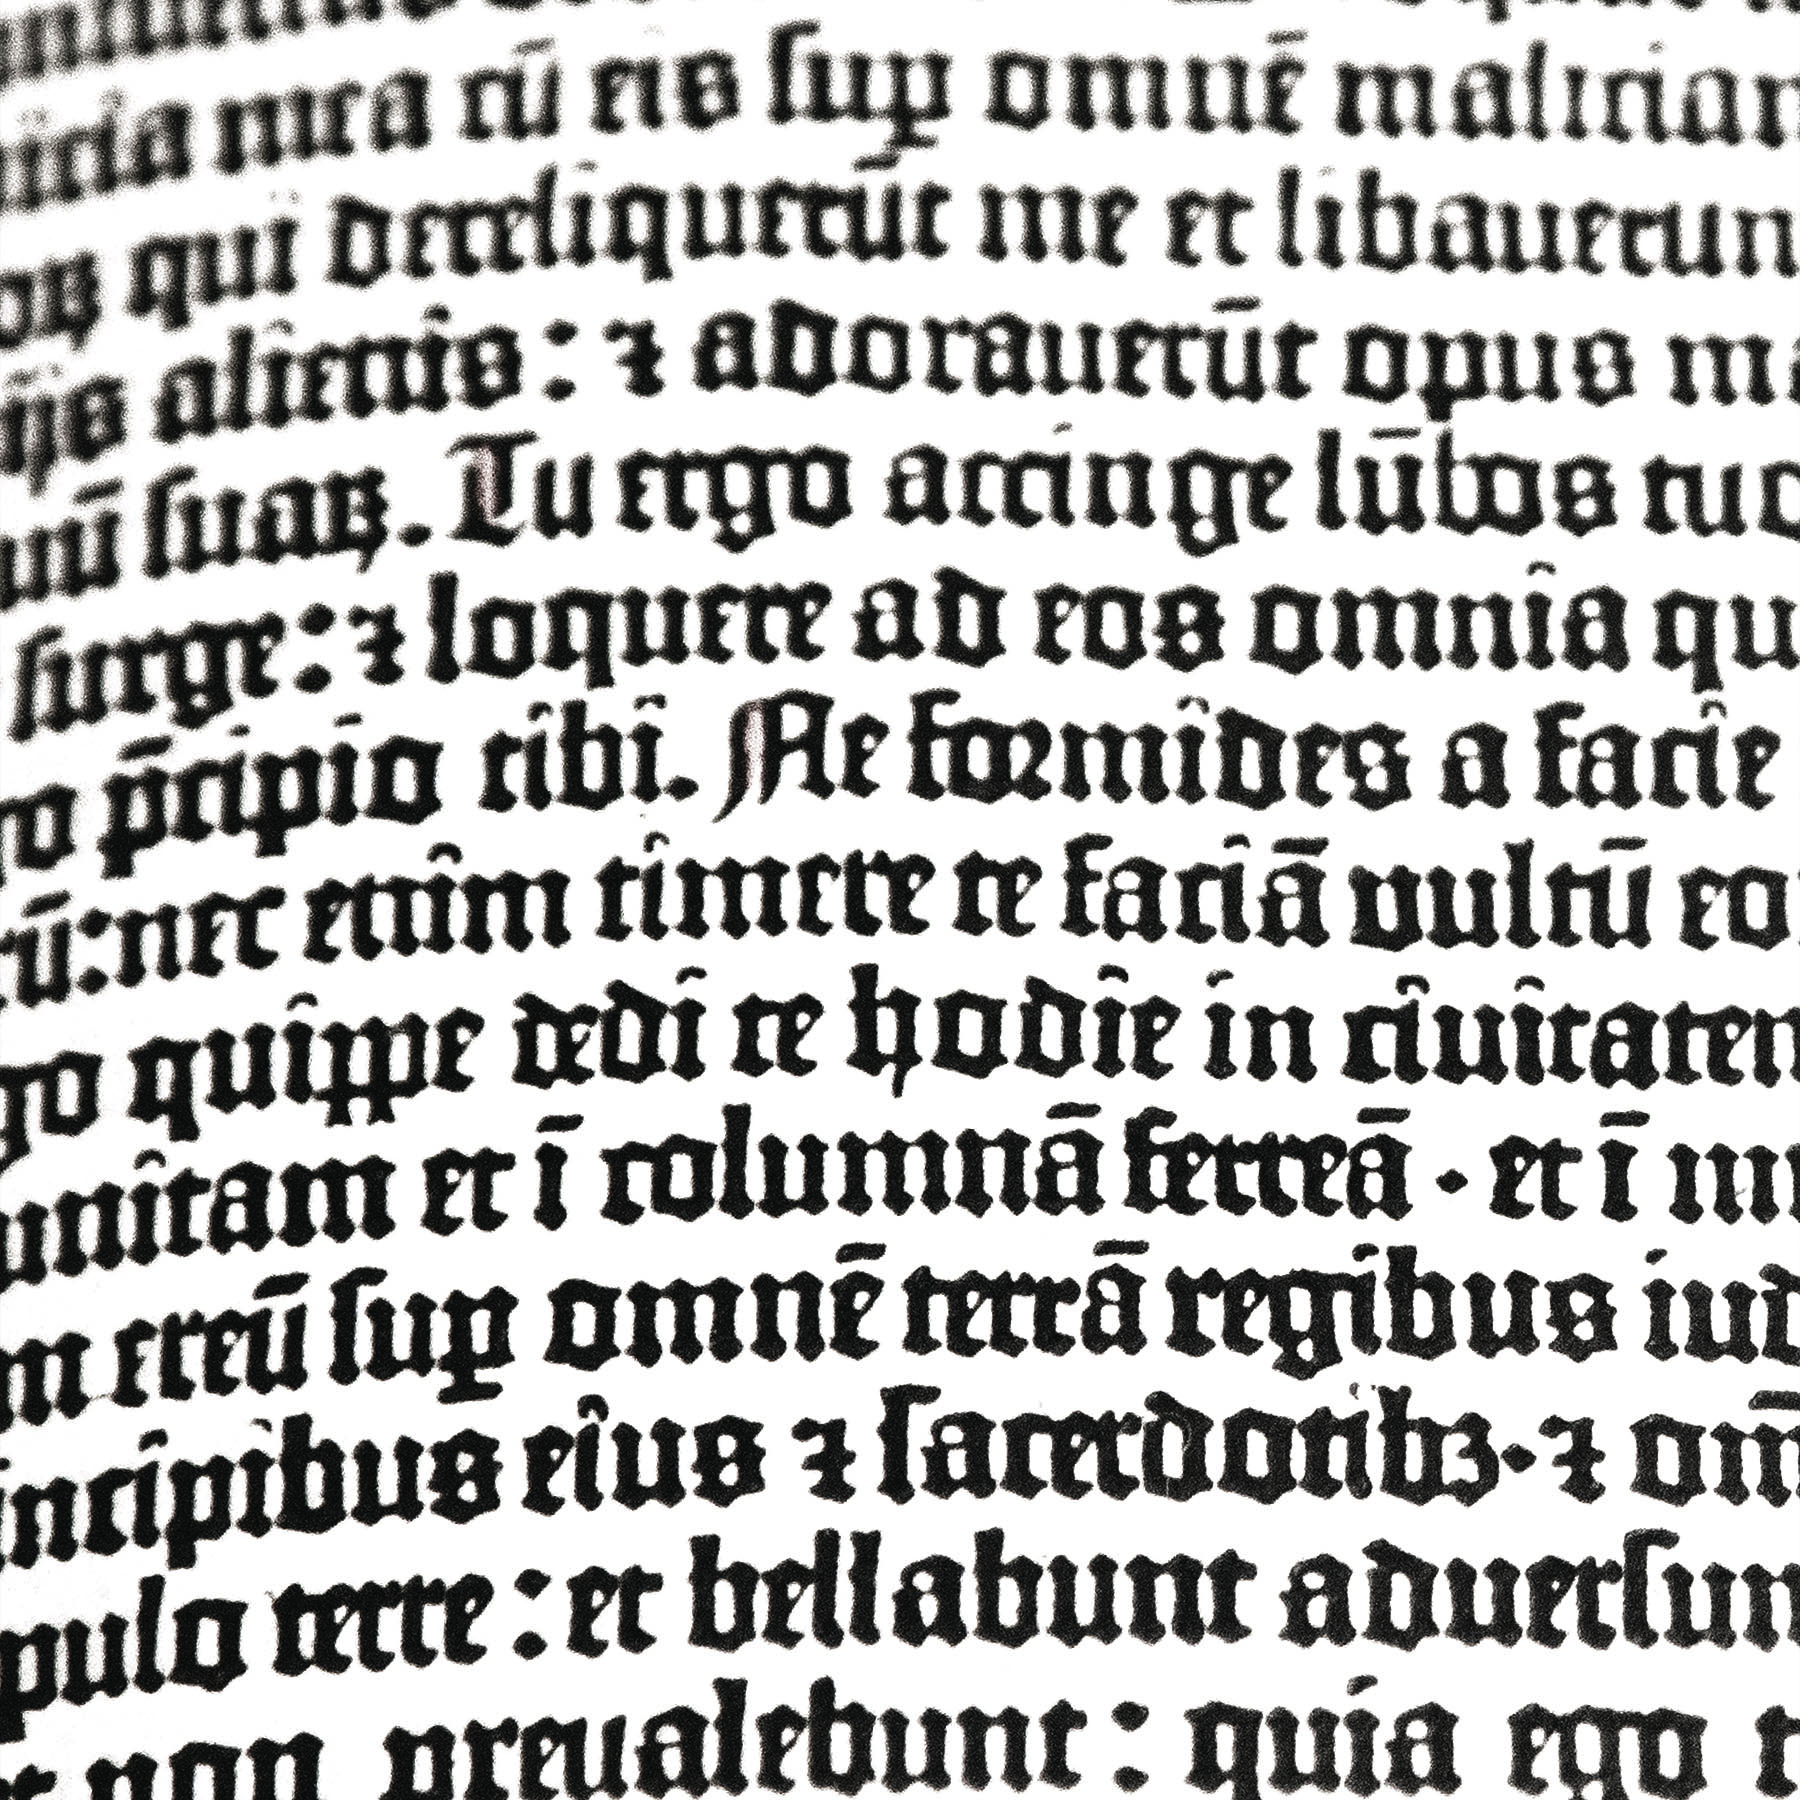 nicia mea cū eis suꝑ omnē malician
oꝝ qui dereliquerūt me et libauerun
ijs alienis: ⁊ adorauerūt opus ma
uū suaꝝ. Tu ergo accinge lūbos tuo
surge: ⁊ loquere ad eos omnia qu
o p̄cipio tibi. Ne formides a facie
cū: nec enim timere te faciā vultū eo
go quippe dedi te hodie in ciuitatem
unitam et ī columnā ferreā · et ī mu
m ereū suꝑ omnē terrā regibus iud
incipibus eius ⁊ sacerdotibꝫ · ⁊ om̄
pulo terre: et bellabunt aduersun
non preualebunt: quia ego t